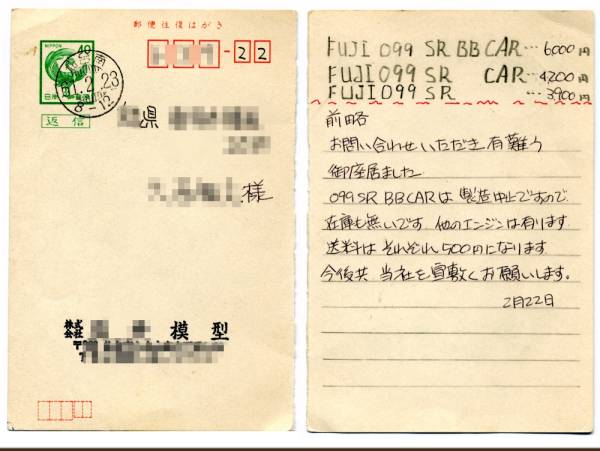 郵便往復はがき
NIPPON
40
日本郵便
返信
2.23
8-12
-22
県
様
株式
会社
模型
〒
FUJI 099 SR BB CAR … 6000円
FUJI 099 SR CAR … 4200円
FUJI 099 SR … 3900円
前略
お問い合わせいただき有難う
御座居ました
099 SR BB CARは製造中止ですので
在庫も無いです 他のエンジンは有ります
送料はそれぞれ500円になります
今後共 当社を宜敷くお願いします。
2月22日